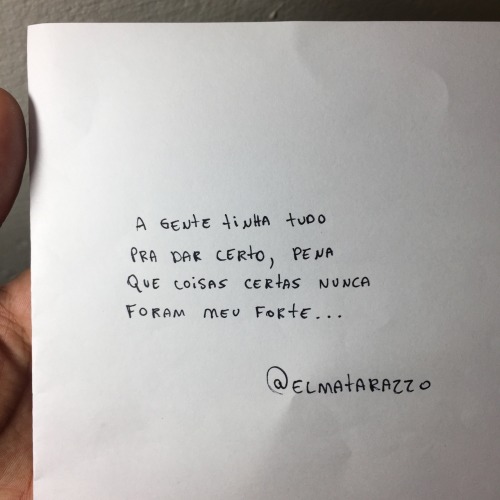 A GENTE TINHA TUDO
PRA DAR CERTO, PENA
QUE COISAS CERTAS NUNCA
FORAM MEU FORTE...
@ELMATARAZZO